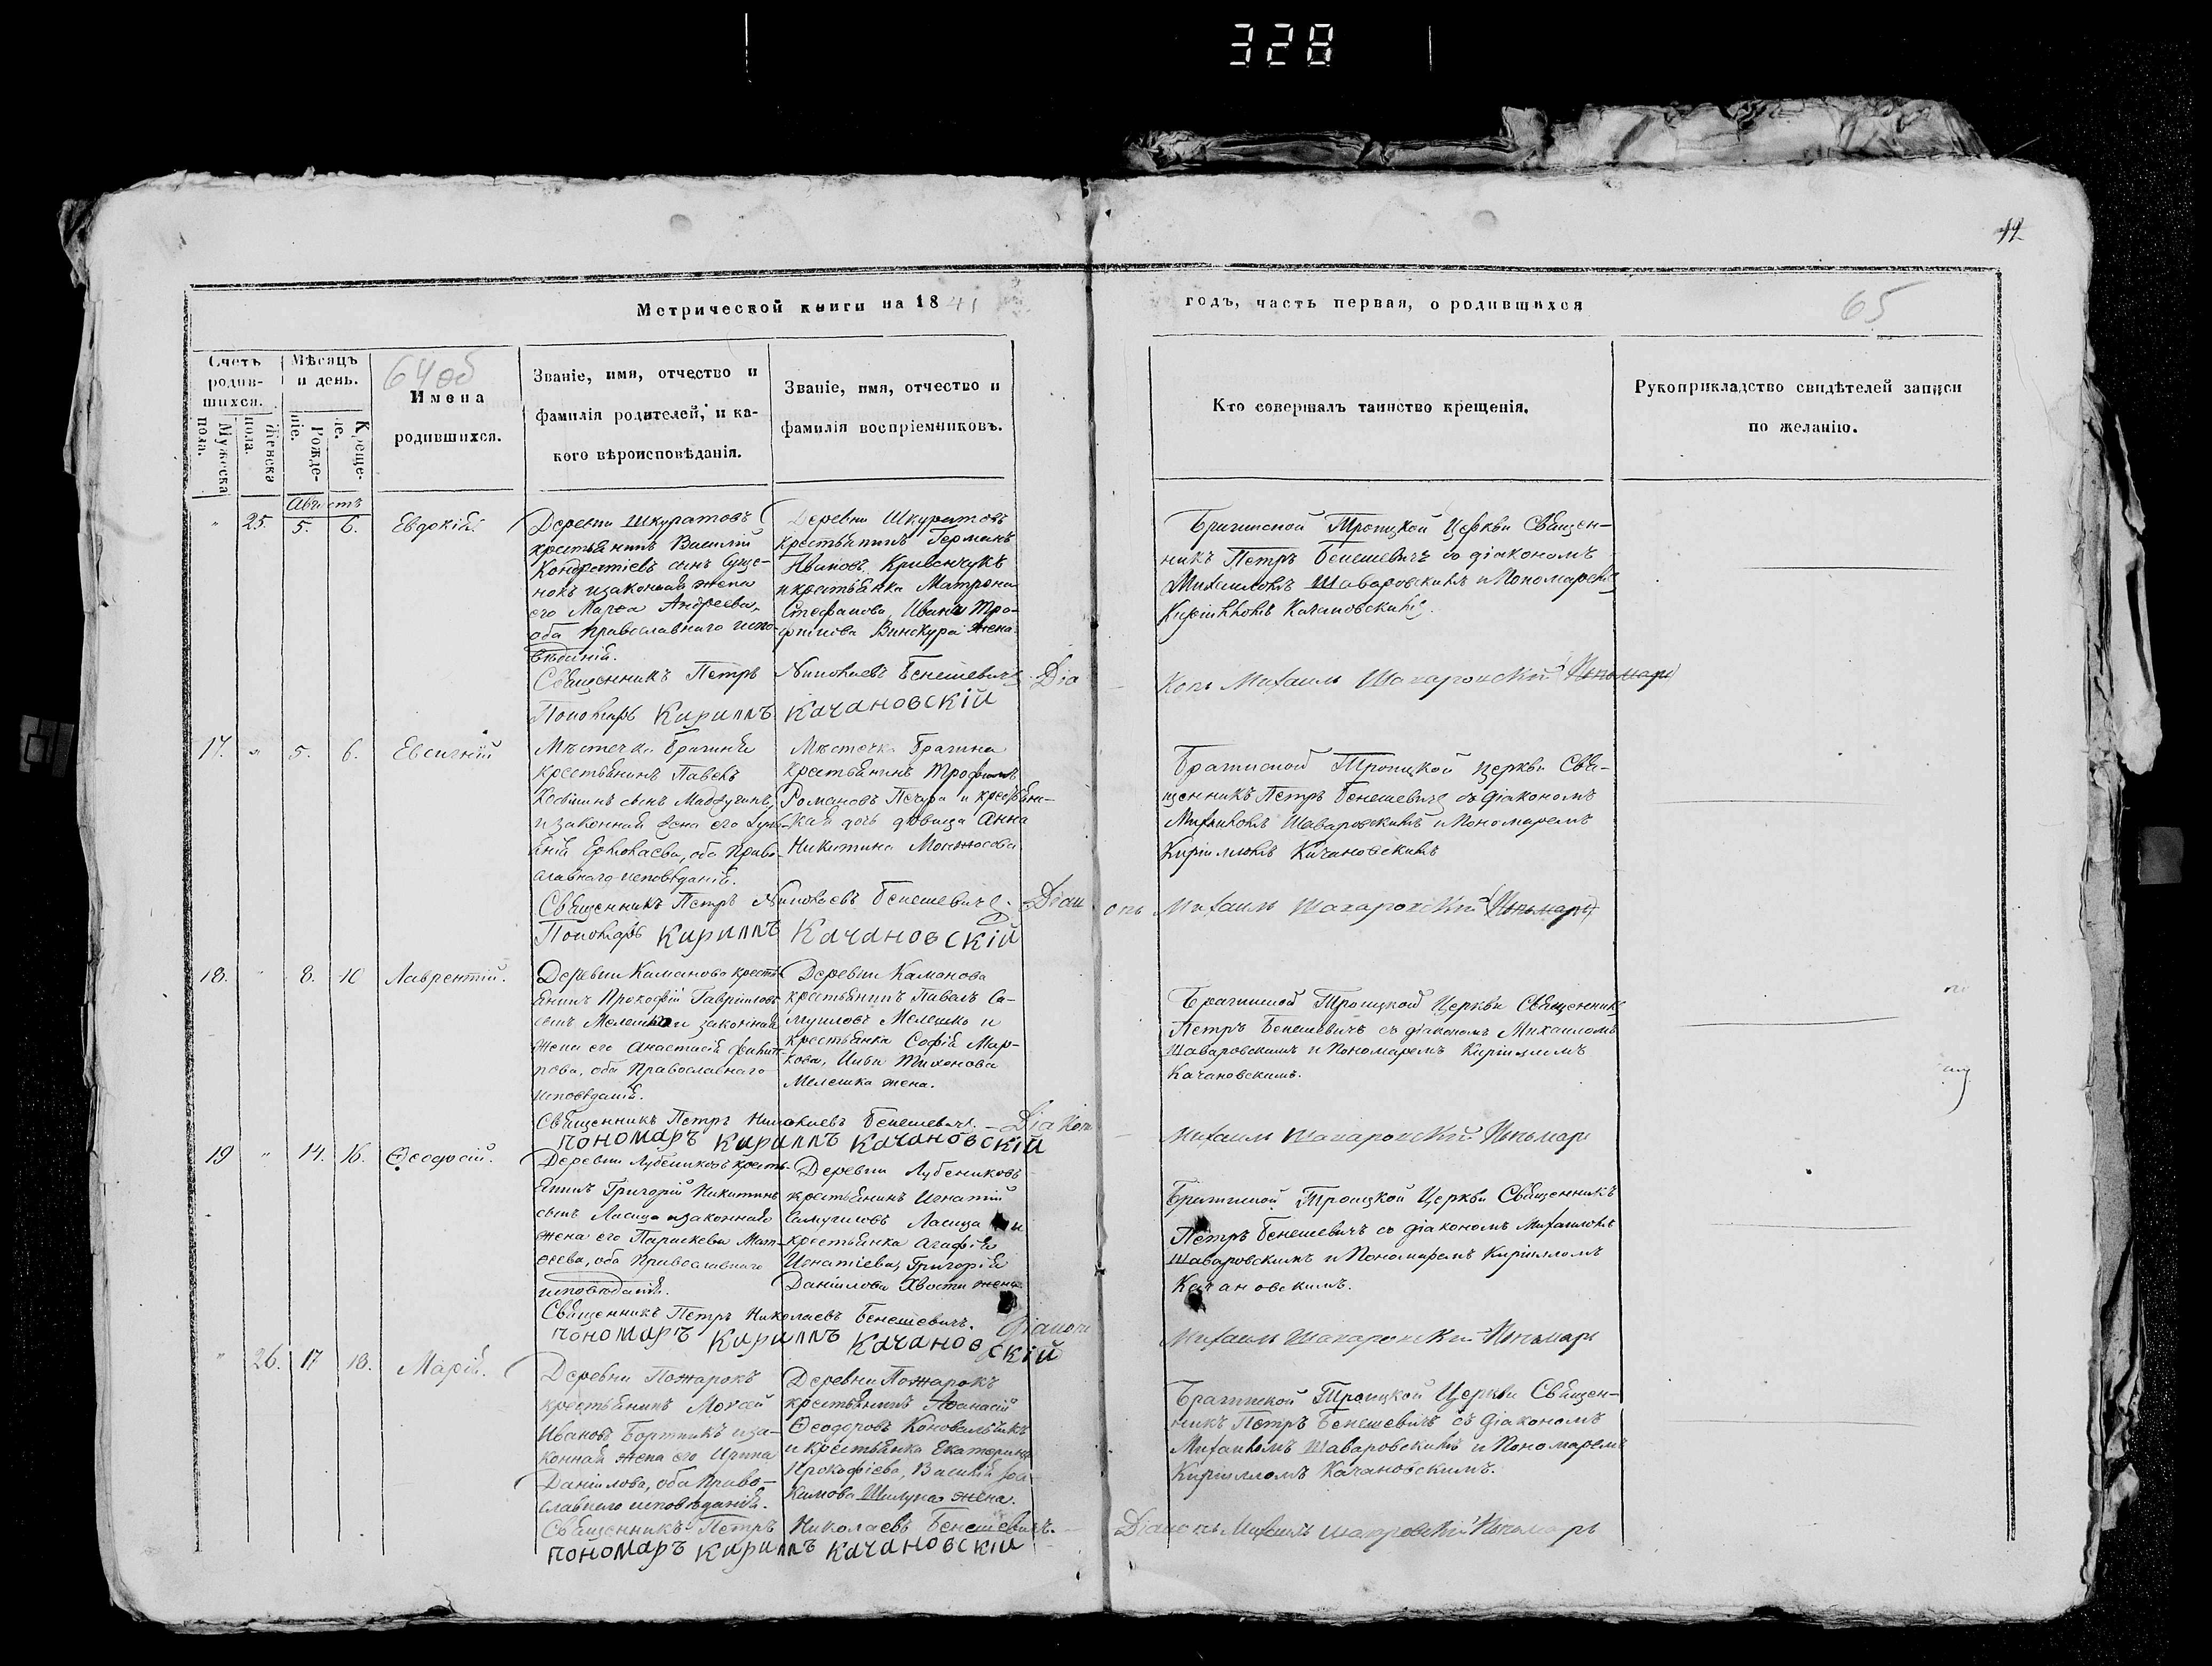 328
12
Метрической книги на 1841
годъ, часть первая, о родившихся
65
Счетъ родив-шихся.
Мужеска пола.
Женска пола.
Мѣсяцъ и день.
Рожде-ніе.
Креще-
64 об
Имена
родившихся.
Званіе, имя, отчество и
фамилія родителей, и ка-
кого вѣроисповѣданія.
Званіе, имя, отчество и
фамилія воспріемниковъ.
Кто совершалъ таинство крещенія.
Рукоприкладство свидѣтелей записи
по желанію.
Августъ
25. 5. 6. Евдокія
Деревни Шкуратовъ
крестьянинъ Василій
Кондратіевъ сынъ Суще-
нокъ и законная жена
его Марѳа Андреева,
оба православнаго испо-
вѣданія.
Деревни Шкуратовъ
крестьянинъ Германъ
Ивановъ Кривенчукъ
и крестьянка Матрона
Стефанова, Ивана Тро-
фимова Винокура жена
Брагинской Троицкой Церкви Священ-
никъ Петръ Бенешевичъ со діакономъ
Михаиломъ Шаваровскимъ и Пономаремъ
Кирилломъ Качановскимъ.
Священникъ Петръ Николаевъ Бенешевичъ. Dіа
конъ Михаилъ Шаваровскій Пономарь
Пономарь Кириллъ Качановскій
17. " 5. 6. Евсигній
Мѣстечка Брагина
крестьянинъ Павелъ
сынъ
и законная жена его
Ермолаева, оба право-
славнаго исповѣданія.
Мѣстечка Брагина
крестьянинъ Трофимъ
Романовъ Печура и крестьян-
ская дочь дѣвица Анна
Никитина
Брагинской Троицкой церкви Свя-
щенникъ Петръ Бенешевичъ съ діакономъ
Михаиломъ Шаваровскимъ и Пономаремъ
Кирилломъ Качановскимъ
Священникъ Петръ Николаевъ Бенешевичъ. Dіак
онъ Михаилъ Шаваровскій Пономарь
Пономарь Кириллъ Качановскій
18. " 8. 10 Лаврентій.
Деревни Команова кресть-
янинъ Прокофій Гавріиловъ
сынъ Мелешко и законная
жена его Анастасія Филип-
пова, оба Православнаго
исповѣданія.
Деревни Команова
крестьянинъ Павелъ Са-
муиловъ Мелешко и
крестьянка Софія Мар-
кова, Тихонова
Мелешка жена.
Брагинской Троицкой Церкви Священникъ
Петръ Бенешевичъ съ діакономъ Михаиломъ
Шаваровскимъ и Пономаремъ Кирилломъ
Качановскимъ.
Священникъ Петръ Николаевъ Бенешевичъ. - Dіаконъ
Михаилъ Шаваровскій Пономарь
пономаръ Кириллъ Качановскій
19 " 14. 16. Ѳеодосій.
Деревни Лубениковъ кресть-
янинъ Григорій Никитинъ
сынъ Ласица и законная
жена его Параскева Мат-
ѳеева, оба Православнаго
исповѣданія.
Деревни Лубениковъ
крестьянинъ Игнатій
Самуиловъ Ласица и
крестьянка Агафія
Игнатіева, Григорія
Даніилова Хвоста жена
Брагинской Троицкой Церкви Священникъ
Петръ Бенешевичъ со діакономъ Михаиломъ
Шаваровскимъ и Пономаремъ Кирилломъ
Качановскимъ.
Священникъ Петръ Николаевъ Бенешевичъ. Діаконъ
Михаилъ Шаваровскій Пономарь
пономаръ Кириллъ Качановскій
" 26. 17 18. Марія.
Деревни Пожарокъ
крестьянинъ Моѵсей
Ивановъ Бортникъ и за-
конная жена его Ирина
Даніилова, оба Право-
славнаго исповѣданія.
Деревни Пожарокъ
крестьянинъ Аѳанасій
Ѳеодоровъ Коновальчикъ
и крестьянка Екатерина
Прокофіева, Василія Іоа-
кимова жена.
Брагинской Троицкой Церкви Священ-
никъ Петръ Бенешевичъ съ діакономъ
Михаиломъ Шаваровскимъ и Пономаремъ
Кирилломъ Качановскимъ.
Священникъ Петръ Николаевъ Бенешевичъ.
Dіаконъ Михаилъ Шаваровскій Пономарь
пономаръ Кириллъ Качановскій